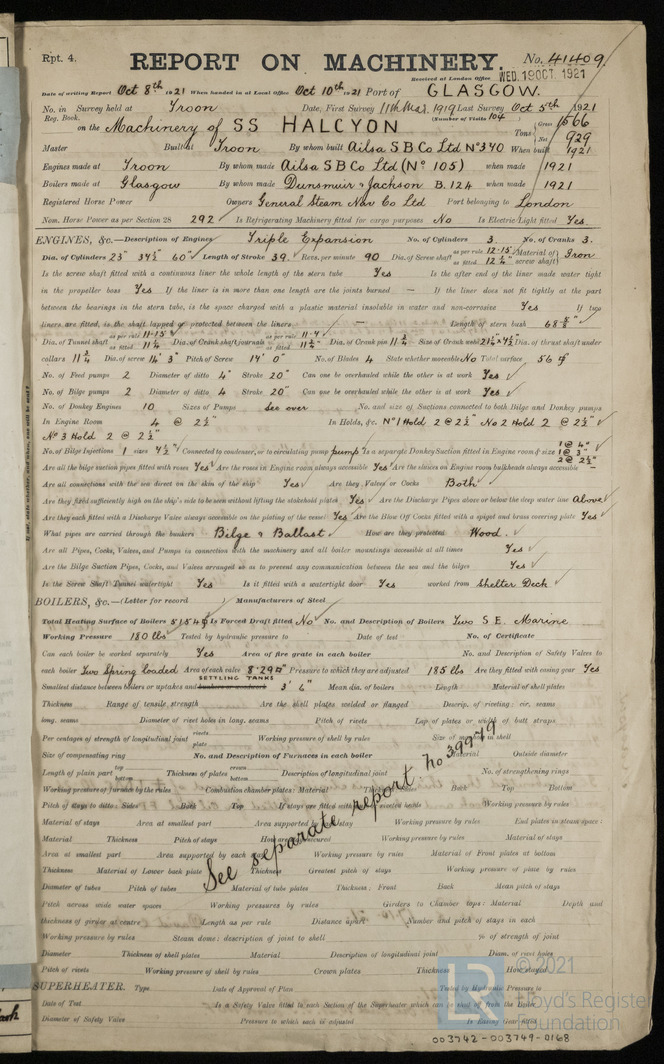 Rpt. 4. REPORT ON MACHINERY. No. 41409.
Received at London Office WED. 19 OCT. 1921
Date of writing Report Oct 8th 1921 When handed in at Local Office Oct 10th 1921 Port of GLASGOW.
No. in Survey held at Troon Date, First Survey 11th Mar. 1919 Last Survey Oct 5th 1921
Reg. Book. (Number of Visits 104)
on the Machinery of SS HALCYON Tons Gross 1566 Net 929
Master Built at Troon By whom built Ailsa S B Co Ltd No 370 When built 1921
Engines made at Troon By whom made Ailsa S B Co Ltd (No 105) when made 1921
Boilers made at Glasgow By whom made Dunsmuir & Jackson B. 124 when made 1921
Registered Horse Power Owners General Steam Nav Co Ltd Port belonging to London
Nom. Horse Power as per Section 28 292 Is Refrigerating Machinery fitted for cargo purposes No Is Electric Light fitted Yes
ENGINES, &c.—Description of Engines Triple Expansion No. of Cylinders 3. No. of Cranks 3.
Dia. of Cylinders 23" 34½" 60" Length of Stroke 39. Revs. per minute 90 Dia. of Screw shaft as per rule 12.15 as fitted 12¼" Material of screw shaft Iron
Is the screw shaft fitted with a continuous liner the whole length of the stern tube Yes Is the after end of the liner made water tight
in the propeller boss Yes If the liner is in more than one length are the joints burned — If the liner does not fit tightly at the part
between the bearings in the stern tube, is the space charged with a plastic material insoluble in water and non-corrosive Yes If two
liners are fitted, is the shaft lapped or protected between the liners — Length of stern bush
Dia. of Tunnel shaft as per rule 11.15 as fitted 11¼ Dia. of Crank shaft journals as per rule 11.7 as fitted Dia. of Crank pin Size of Crank webs Dia. of thrust shaft under
collars 11¾ Dia. of screw 14' 3" Pitch of Screw 14' 0" No. of Blades 4 State whether moveable No Total surface 56
No. of Feed pumps 2 Diameter of ditto 4" Stroke 20" Can one be overhauled while the other is at work Yes
No. of Bilge pumps 2 Diameter of ditto 4 Stroke 20" Can one be overhauled while the other is at work Yes
No. of Donkey Engines 10 Sizes of Pumps See over No. and size of Suctions connected to both Bilge and Donkey pumps
In Engine Room 4 @ 2½" In Holds, &c. No 1 Hold 2 @ 2½" No 2 Hold 2 @ 2½"
No 3 Hold 2 @ 2½"
No. of Bilge Injections 1 sizes 4½" Connected to condenser, or to circulating pump pump Is a separate Donkey Suction fitted in Engine room & size 1 @ 4" 1 @ 3" 2 @ 2½"
Are all the bilge suction pipes fitted with roses Yes Are the roses in Engine room always accessible Yes Are the sluices on Engine room bulkheads always accessible
Are all connections with the sea direct on the skin of the ship Yes Are they Valves or Cocks Both
Are they fixed sufficiently high on the ship's side to be seen without lifting the stokehold plates Yes Are the Discharge Pipes above or below the deep water line Above
Are they each fitted with a Discharge Valve always accessible on the plating of the vessel Yes Are the Blow Off Cocks fitted with a spigot and brass covering plate Yes
What pipes are carried through the bunkers Bilge & Ballast How are they protected Wood.
Are all Pipes, Cocks, Valves, and Pumps in connection with the machinery and all boiler mountings accessible at all times Yes
Are the Bilge Suction Pipes, Cocks, and Valves arranged so as to prevent any communication between the sea and the bilges Yes
Is the Screw Shaft Tunnel watertight Yes Is it fitted with a watertight door Yes worked from Shelter Deck
BOILERS, &c.—(Letter for record ) Manufacturers of Steel
Total Heating Surface of Boilers 5154 Is Forced Draft fitted No No. and Description of Boilers Two S. E. Marine
Working Pressure 180 lbs Tested by hydraulic pressure to Date of test No. of Certificate
Can each boiler be worked separately Yes Area of fire grate in each boiler No. and Description of Safety Valves to
each boiler Two Spring loaded Area of each valve 8.29 Pressure to which they are adjusted 185 lbs Are they fitted with easing gear Yes
Smallest distance between boilers or uptakes and SETTLING TANKS 3' 6" Mean dia. of boilers Length Material of shell plates
Thickness Range of tensile strength Are the shell plates welded or flanged Descrip. of riveting: cir. seams
long. seams Diameter of rivet holes in long. seams Pitch of rivets Lap of plates or width of butt straps
Per centages of strength of longitudinal joint rivets plate Working pressure of shell by rules Size of manhole in shell
Size of compensating ring No. and Description of Furnaces in each boiler Material Outside diameter
Length of plain part top bottom Thickness of plates crown bottom Description of longitudinal joint No. of strengthening rings
Working pressure of furnace by the rules Combustion chamber plates: Material Back Top Bottom
Pitch of stays to ditto: Sides Back Top If stays are fitted with Working pressure by rules
Material of stays Area at smallest part Area supported by each stay Working pressure by rules End plates in steam space:
Material Thickness Pitch of stays How are stays secured Working pressure by rules Material of stays
Area at smallest part Area supported by each stay Working pressure by rules Material of Front plates at bottom
Thickness Material of Lower back plate Thickness Greatest pitch of stays Working pressure of plate by rules
Diameter of tubes Pitch of tubes Material of tube plates Thickness: Front Back Mean pitch of stays
Pitch across wide water spaces Working pressures by rules Girders to Chamber tops: Material Depth and
thickness of girder at centre Length as per rule Distance apart Number and pitch of stays in each
Working pressure by rules Steam dome: description of joint to shell % of strength of joint
Diameter Thickness of shell plates Material Description of longitudinal joint Diam. of rivet holes
Pitch of rivets Working pressure of shell by rules Crown plates Thickness How stayed
See separate report no 39979
SUPERHEATER. Type Date of Approval of Plan Tested by Hydraulic Pressure to
Date of Test Is a Safety Valve fitted to each Section of the Superheater which can be shut off from the Boiler
Diameter of Safety Valve Pressure to which each is adjusted Is Easing Gear fitted
LR
© 2021
Lloyd's Register
Foundation
003742-003749-0168